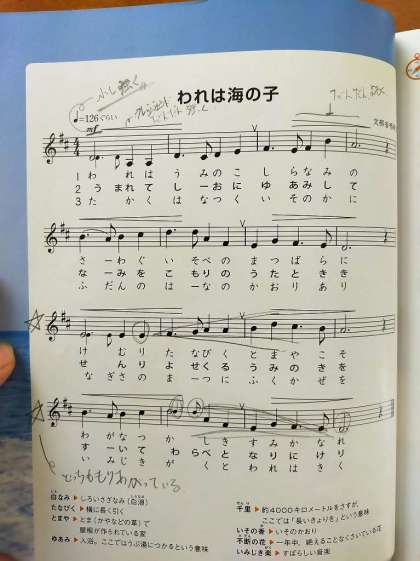 少し強く
♩=126ぐらい
クレッシェンド
だんだん強く
だんだん弱く
われは海の子
文部省唱歌
mf
1 わ れ は う み の こ し ら な み の
2 う ま れ て し ー お に ゆ あ み し て
3 た か く は な つ く い そ の か に
さ ー わ ぐ い そ べ の ま つ ば ら に
な ー み を こ も り の う た と き き
ふ だ ん の は ー な の か お り あ り
け む り た な び く と ま や こ そ
せ ん り よ せ く る う み の き を
な ぎ さ の ま ー つ に ふ く か ぜ を
わ が な つ か し き す み か な れ
す ー い て わ ら べ と な り に け り
い み じ き が く と わ れ は き く
どちらももりあがっている
白なみ▶しろいさざなみ(白浪)
たなびく▶横に長く引く
とまや▶とま(かやなどの草)で
屋根が作られている家
ゆあみ▶入浴。ここではうぶ湯につかるという意味
千里▶約4000キロメートルをさすが、
ここでは「長いきょり」という意味
いその香▶いそのかおり
不断の花▶一年中、絶えることなくさいている花
いみじき楽▶すばらしい音楽